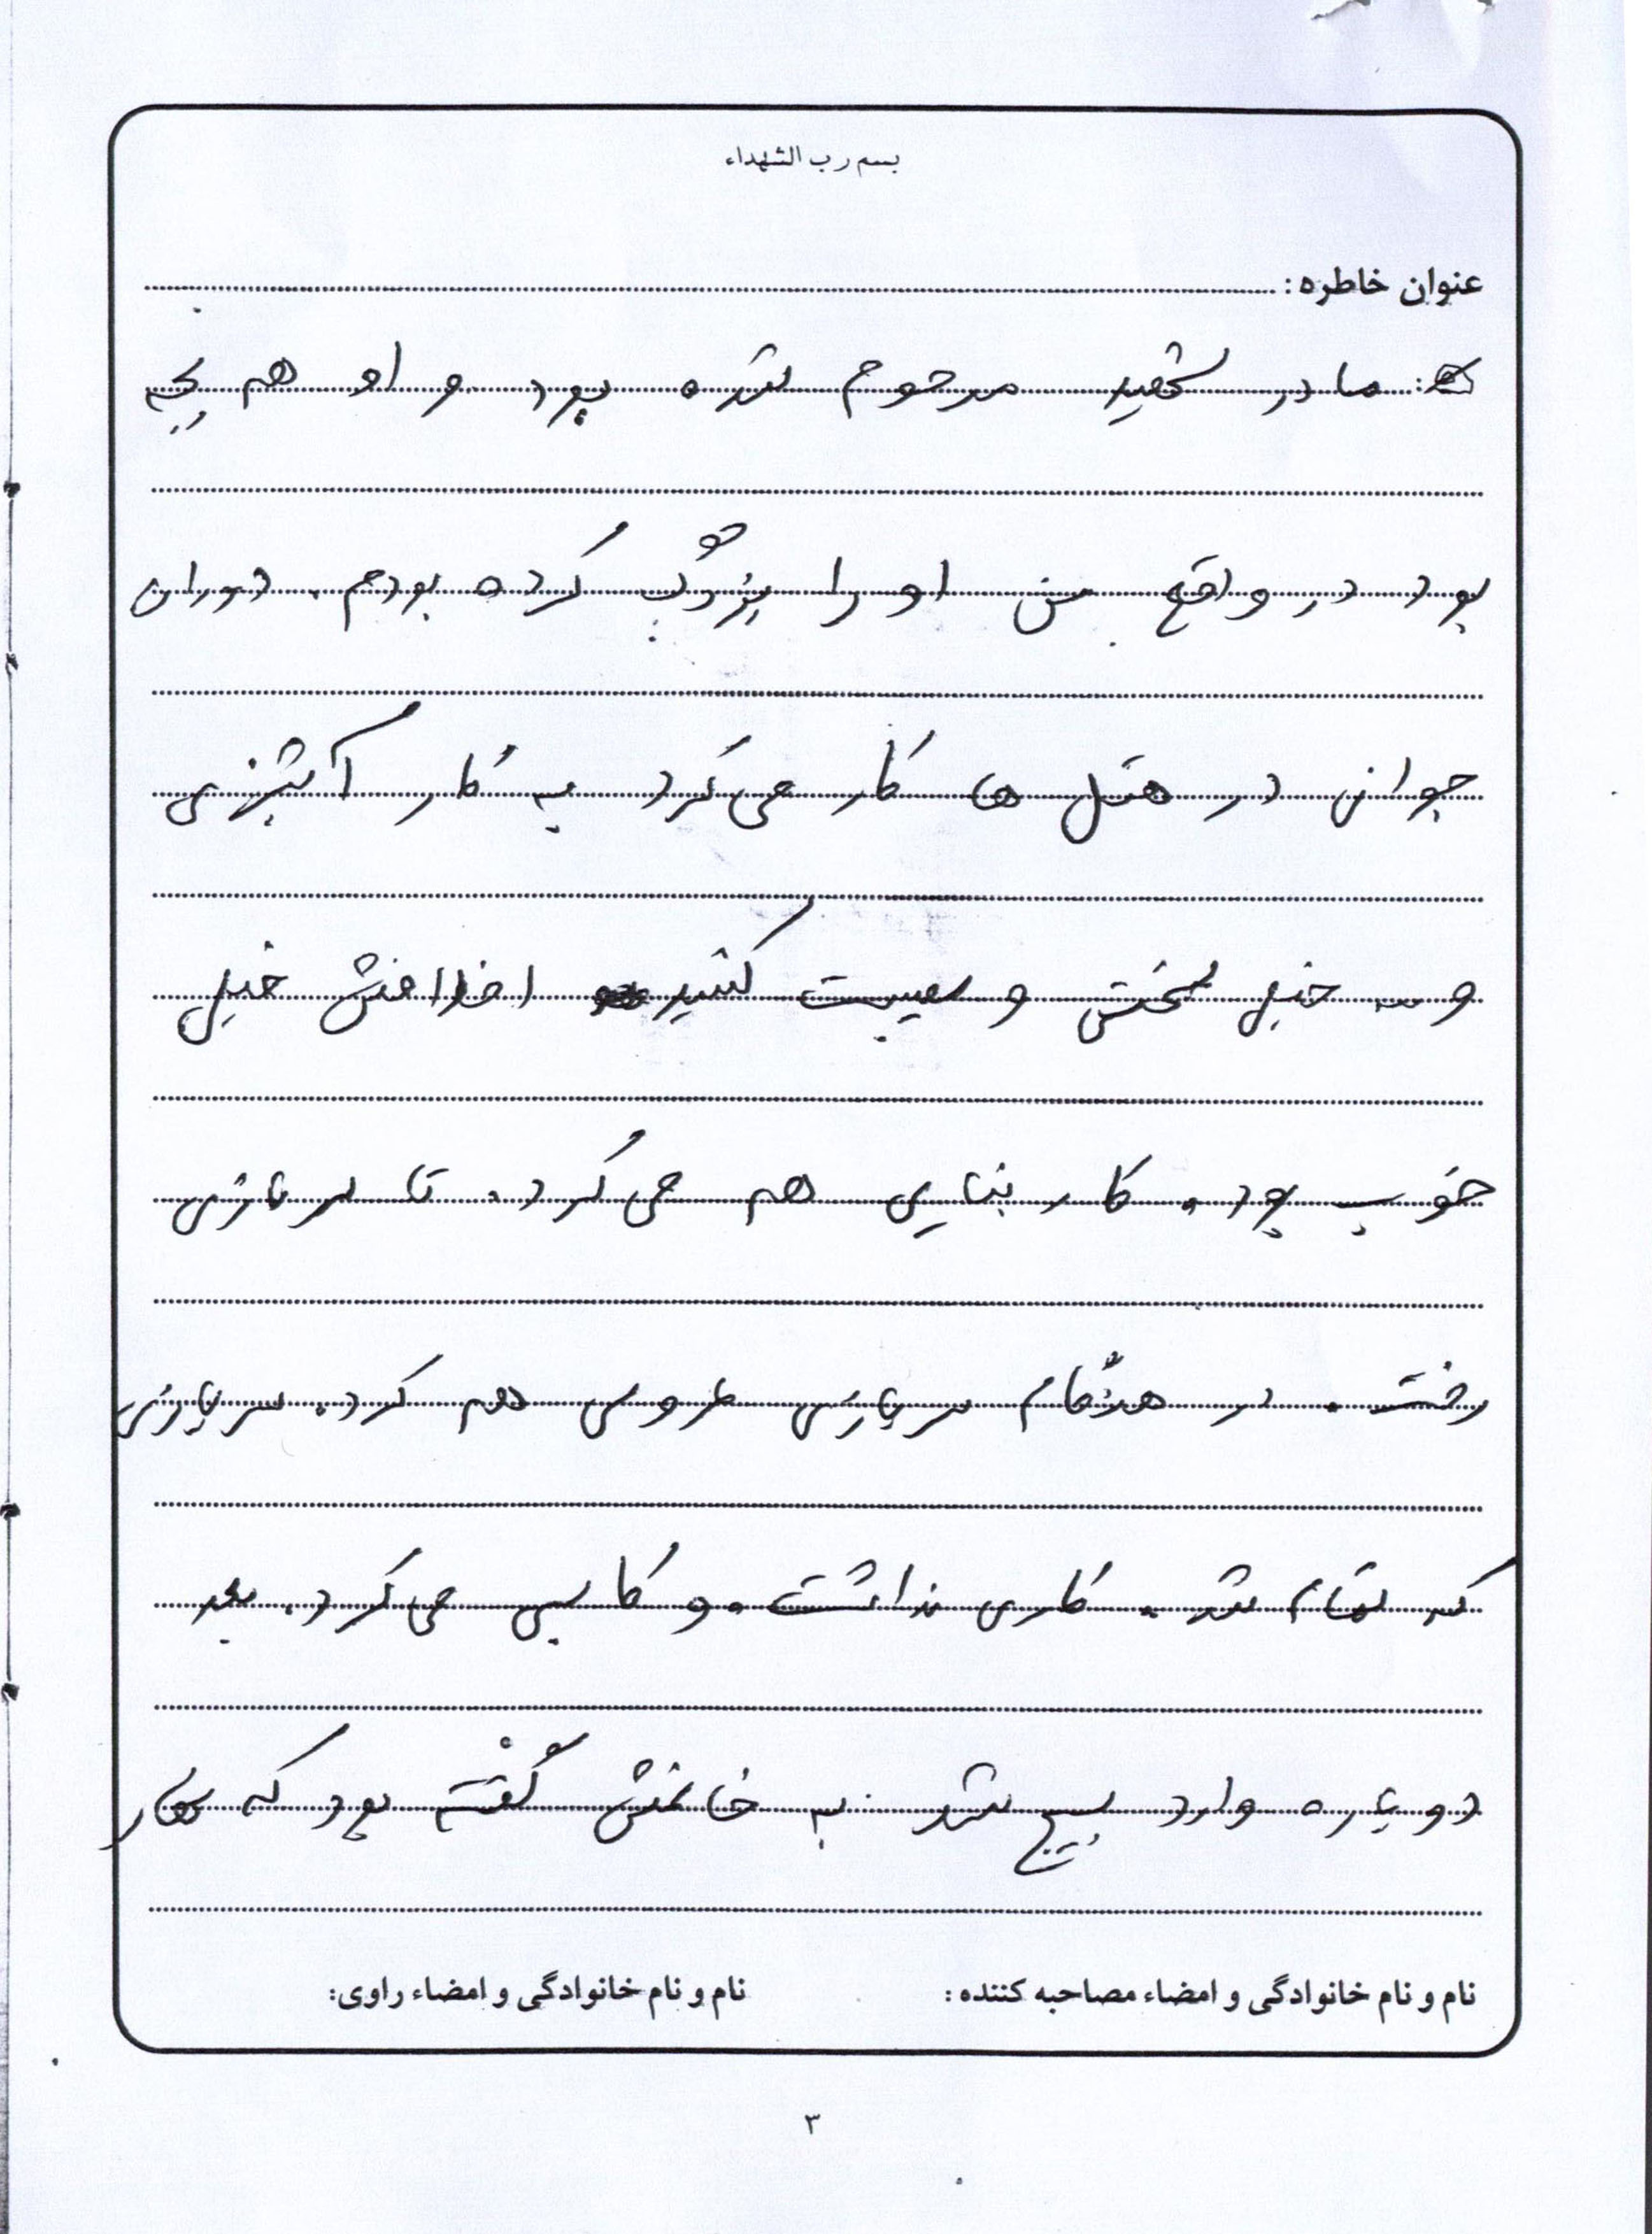 بسم رب الشهداء
عنوان خاطره:
مادر شهید مرحوم شده بود و او هم بچه
بود در واقع من او را بزرگ کرده بودم. دوران
جوانی در هتل ها کار می کرد به کار آشپزی
و خیلی سختی و مصیبت کشید اخلاقش خیلی
خوب بود. کار بنایی هم می کرد. تا سربازی
رفت. در هنگام سربازی عروسی هم کرد. سربازی
که تمام شد. کاری نداشت. و کاسبی می کرد. بعد
دوباره وارد بسیج شد. به خانمش گفته بود که
نام و نام خانوادگی و امضاء مصاحبه کننده:
نام و نام خانوادگی و امضاء راوی:
۳